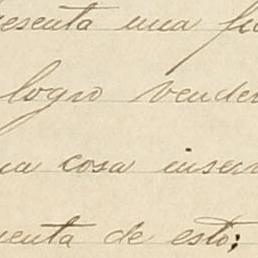 esenta una fi
logro vender
na cosa inser
uenta de esto;